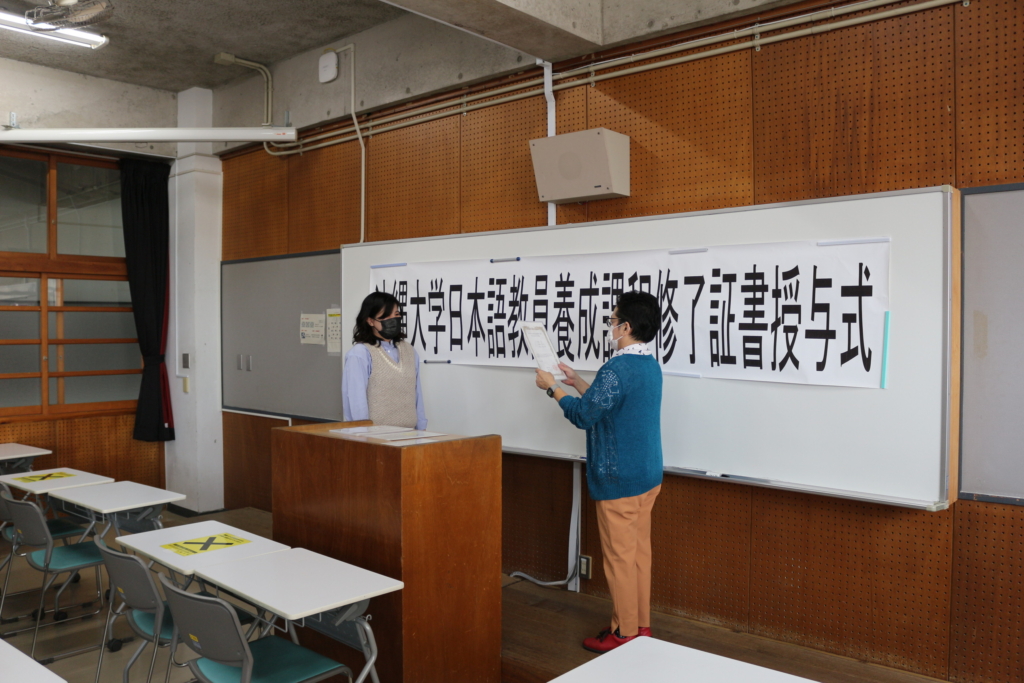 沖縄大学日本語教員養成課程修了証書授与式